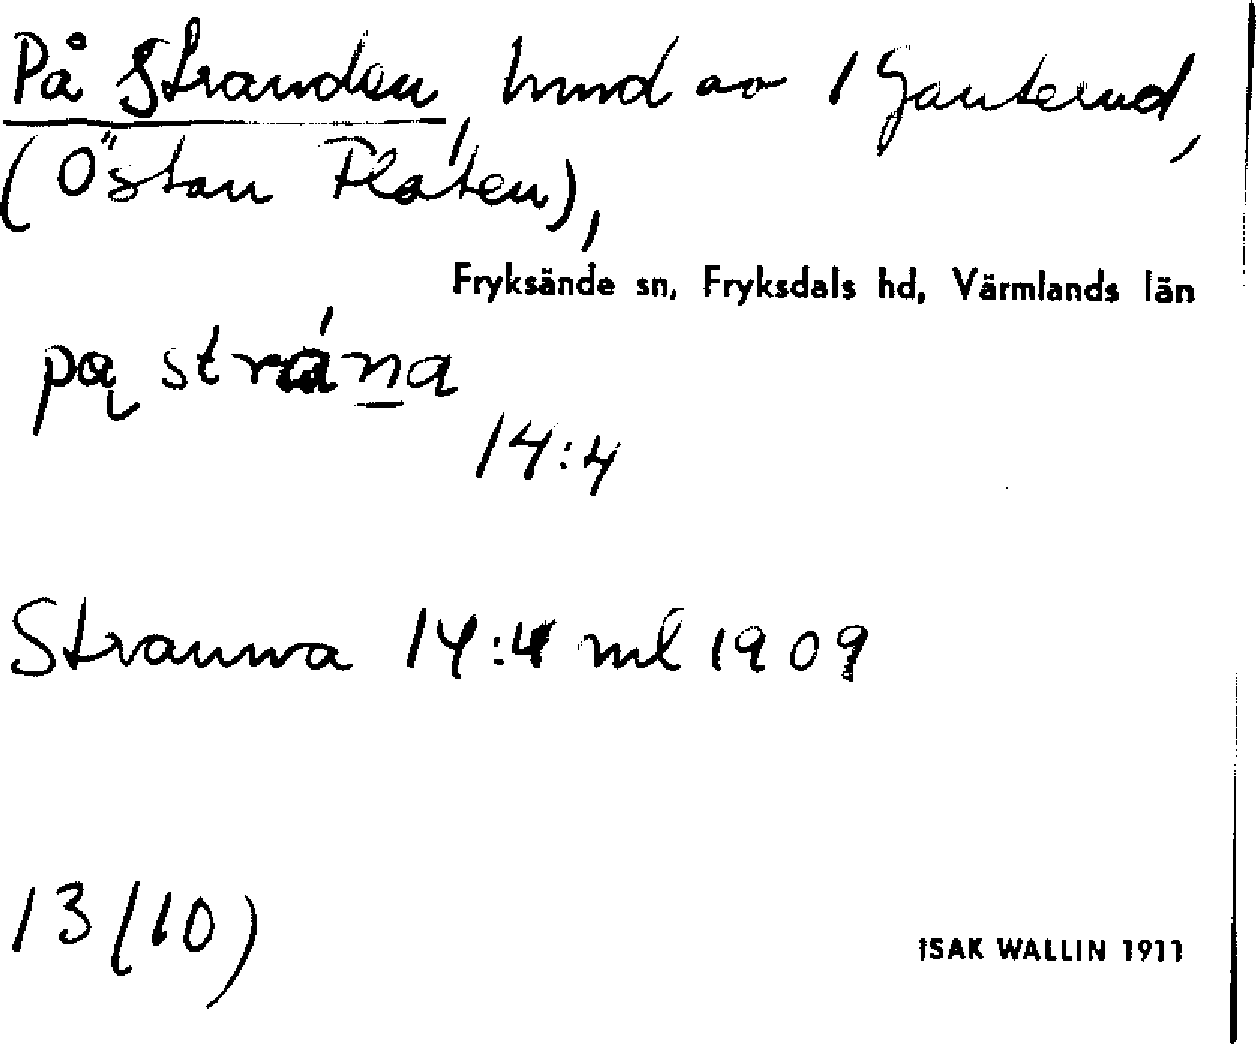 På Stranden, hmd av 1 Gauterud,
(Östan Flåten),
Fryksände sn, Fryksdals hd, Värmlands län
på strána
14:4
Stranna 14:4 ml 1909
13 (10)
ISAK WALLIN 1911